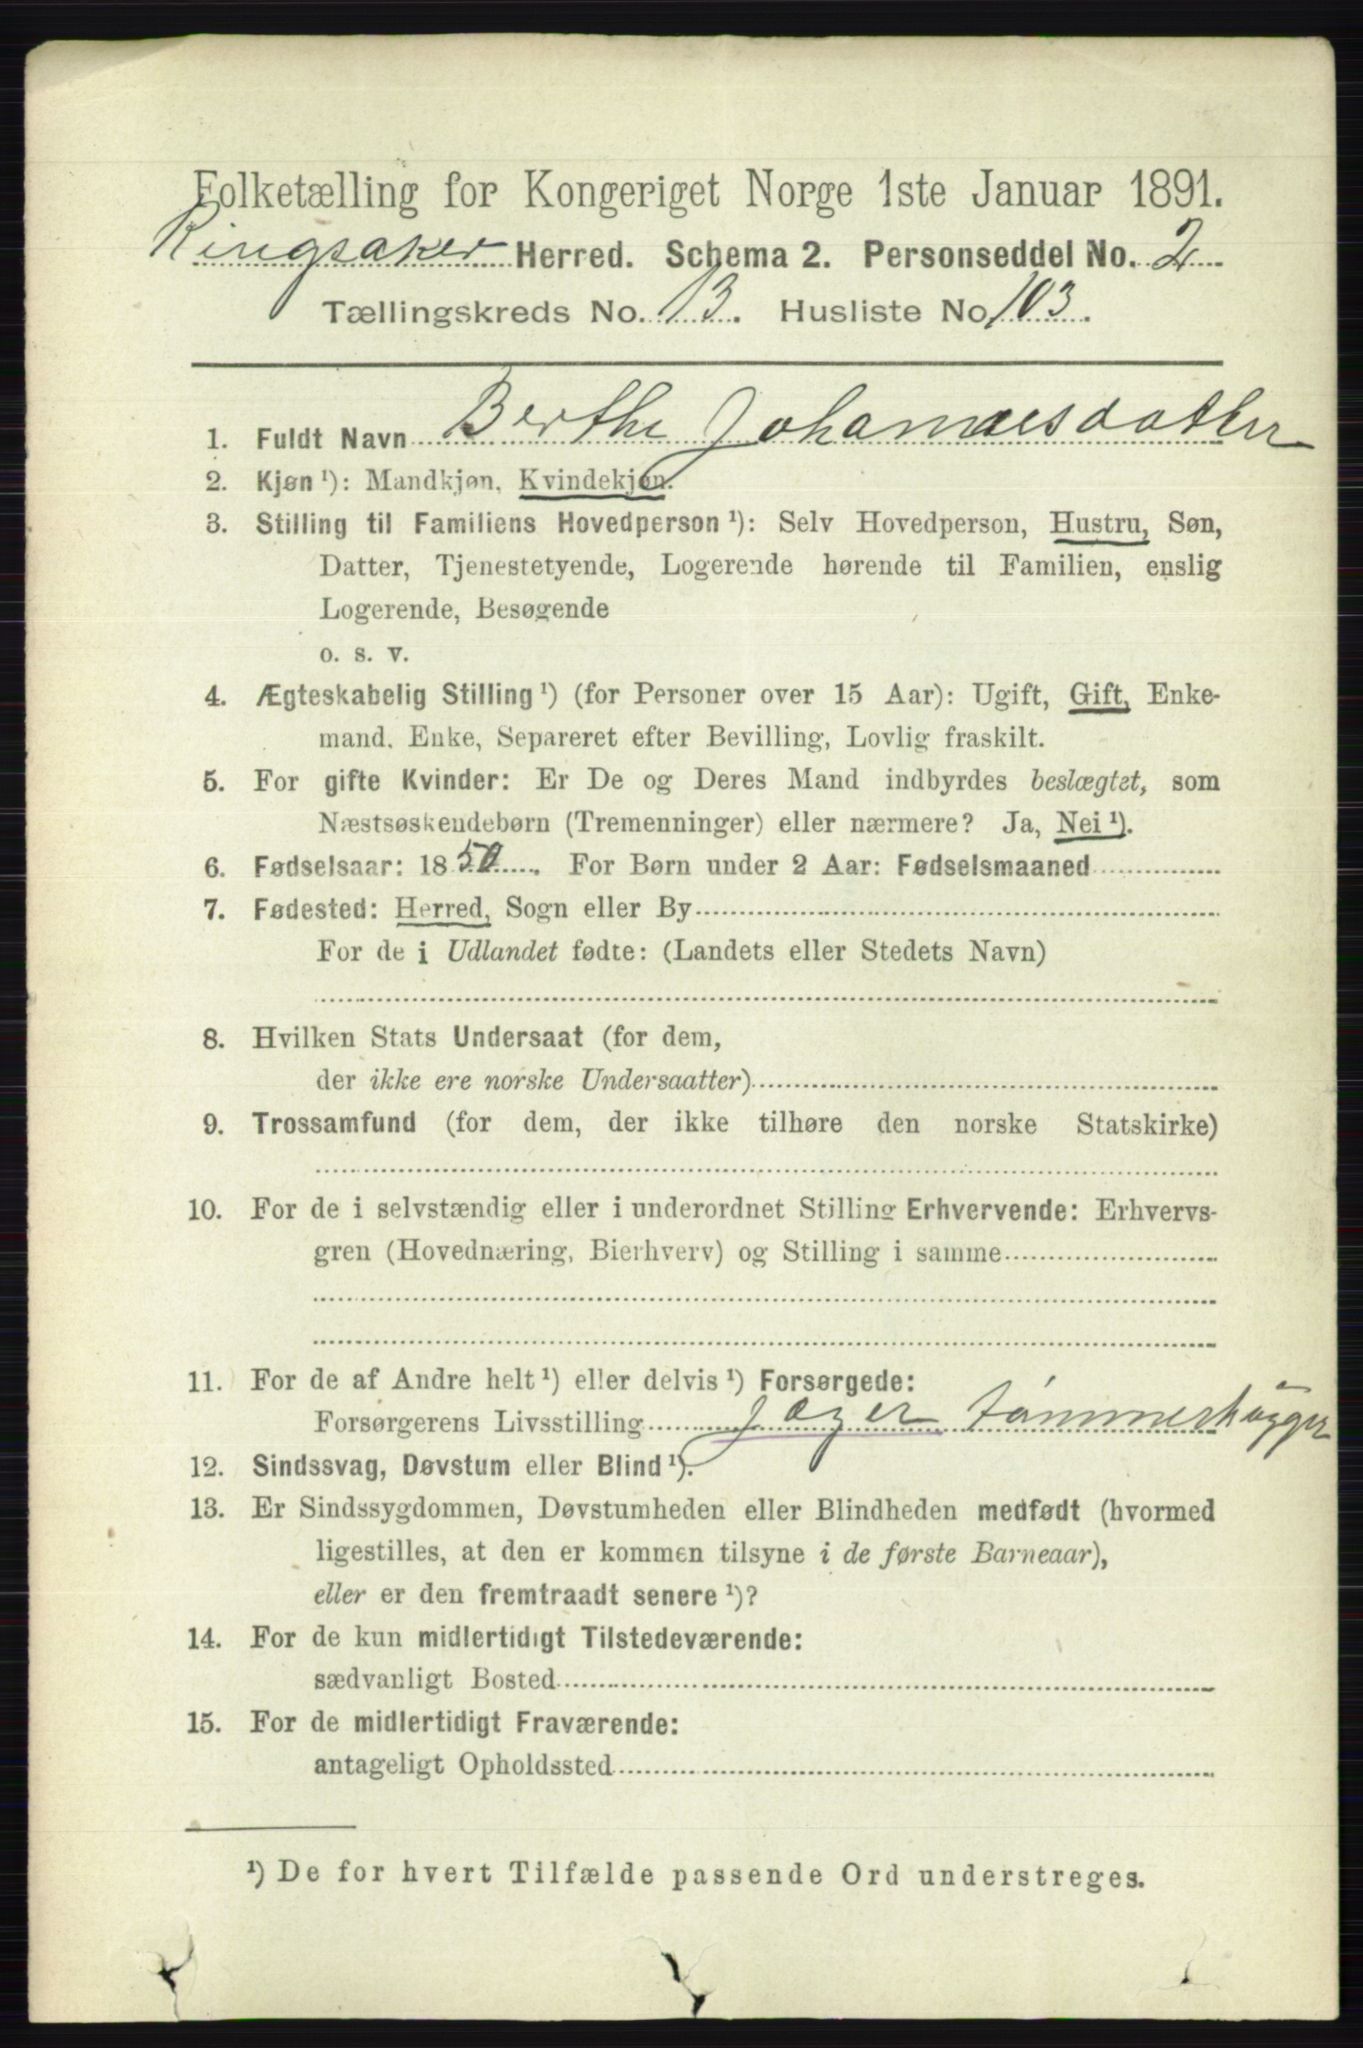 Folketælling for Kongeriget Norge 1ste Januar 1891.
Ringsaker Herred. Schema 2. Personseddel No. 2
Tællingskreds No. 13. Husliste No. 103.
1. Fuldt Navn Berthe Johannesdatter
2. Kjøn ¹): Mandkjøn, Kvindekjøn.
3. Stilling til Familiens Hovedperson ¹): Selv Hovedperson, Hustru, Søn,
Datter, Tjenestetyende, Logerende hørende til Familien, enslig
Logerende, Besøgende
o. s. v.
4. Ægteskabelig Stilling ¹) (for Personer over 15 Aar): Ugift, Gift, Enke-
mand, Enke, Separeret efter Bevilling, Lovlig fraskilt.
5. For gifte Kvinder: Er De og Deres Mand indbyrdes beslægtet, som
Næstsøskendebørn (Tremenninger) eller nærmere? Ja, Nei ¹).
6. Fødselsaar: 1850. For Børn under 2 Aar: Fødselsmaaned
7. Fødested: Herred, Sogn eller By
For de i Udlandet fødte: (Landets eller Stedets Navn)
8. Hvilken Stats Undersaat (for dem,
der ikke ere norske Undersaatter)
9. Trossamfund (for dem, der ikke tilhøre den norske Statskirke)
10. For de i selvstændig eller i underordnet Stilling Erhvervende: Erhvervs-
gren (Hovednæring, Bierhverv) og Stilling i samme
11. For de af Andre helt ¹) eller delvis ¹) Forsørgede:
Forsørgerens Livsstilling Jæger tømmerhugger
12. Sindssvag, Døvstum eller Blind ¹).
13. Er Sindssygdommen, Døvstumheden eller Blindheden medfødt (hvormed
ligestilles, at den er kommen tilsyne i de første Barneaar),
eller er den fremtraadt senere ¹)?
14. For de kun midlertidigt Tilstedeværende:
sædvanligt Bosted
15. For de midlertidigt Fraværende:
antageligt Opholdssted
¹) De for hvert Tilfælde passende Ord understreges.